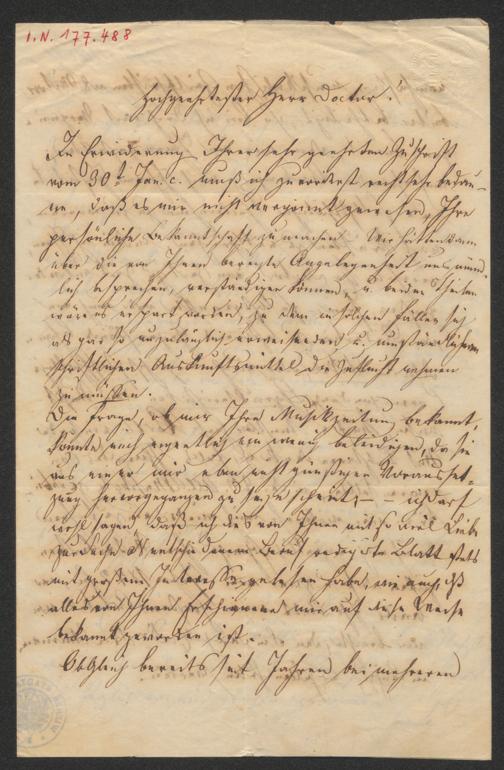 I.N. 177.488
Hochgeehrtester Herr Doctor!
In Erwiderung Ihrer sehr geehrten Zuschrift
vom 30t Jan. c. muß ich zuvörderst recht sehr bedau-
ren, daß es mir nicht vergönnt gewesen, Ihre
persönliche Bekanntschaft zu machen. Wir hätten dann
über die von Ihnen beregte Angelegenheit uns münd-
lich besprechen, verständigen können, u. beiden Theilen
wäre es erspart worden, zu dem in solchen Fällen sich
als gar so unzulänglich erweisenden u. umständlichen
schriftlichen Auskunftsmittel die Zuflucht nehmen
zu müssen.
Die Frage, ob mir Ihre Musikzeitung bekannt,
könnte mich eigentlich ein wenig beleidigen, da sie
aus einer mir eben nicht günstigen Vorausset-
zung hervorgegangen zu sein scheint; – ich darf
wohl sagen, daß ich das von Ihnen mit so viel Liebe
und entschiedenem Beruf redigirte Blatt stets
mit großem Interesse gelesen habe, wie auch, daß
alles von Ihnen Erschienene mir auf diese Weise
bekannt geworden ist.
Obgleich bereits seit Jahren bei mehreren